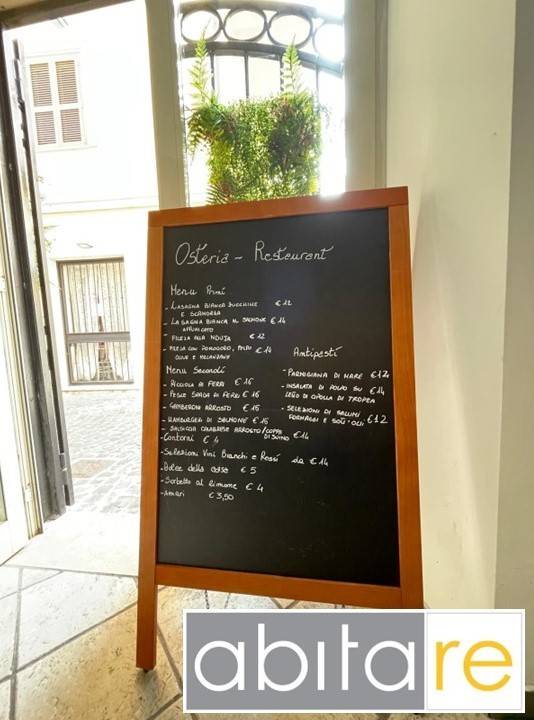 Osteria - Restaurant
Menu Primi
- LASAGNA BIANCA ZUCCHINE € 12
E SCAMORZA
- LASAGNA BIANCA AL SALMONE € 14
AFFUMICATO
- FILEJA ALLA NDUJA € 12
- FILEJA CON POMODORO, POLPO € 14
OLIVE E MELANZANE
Menu Secondi
- RICCIOLA AI FERRI € 16
- PESCE SPADA AI FERRI € 16
- GAMBERONI ARROSTO € 16
- HAMBURGER DI SALMONE € 16
- SALSICCIA CALABRESE ARROSTO / COPPA
DI SUINO € 14
- Contorni € 4
- Selezioni Vini Bianchi e Rossi da € 14
- Dolce della casa € 5
- Sorbetto al limone € 4
- Amari € 3,50
Antipasti
- PARMIGIANA DI MARE € 12
- INSALATA DI POLPO SU € 14
LETTO DI CIPOLLA DI TROPEA
- SELEZIONI DI SALUMI
FORMAGGI E SOTT'OLI € 12
abitare